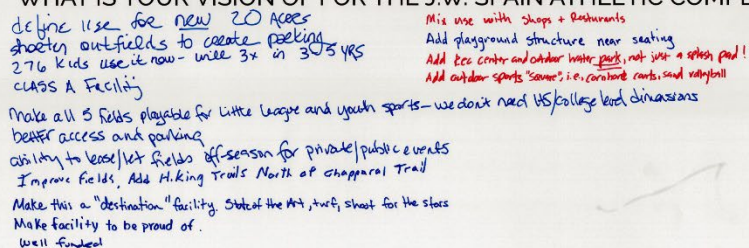 WHAT IS YOUR VISION OF FOR THE J.W. SPAIN ATHLETIC COMPLE
define use for new 20 Acres
shorten outfields to create parking
276 kids use it now - will 3x in 3-5 YRS
CLASS A Facility
Make all 5 fields playable for Little League and youth sports - we don't need HS/college level dimensions
better access and parking
ability to lease/let fields off-season for private/public events
Improve fields, Add Hiking Trails North of Chapparal Trail
Make this a "destination" facility. State of the Art, turf, shoot for the stars
Make facility to be proud of.
Well funded
Mix use with shops + Resturants
Add playground structure near seating
Add Rec center and outdoor water park, not just a splash pad!
Add outdoor sports "square", i.e., cornhole courts, sand volleyball